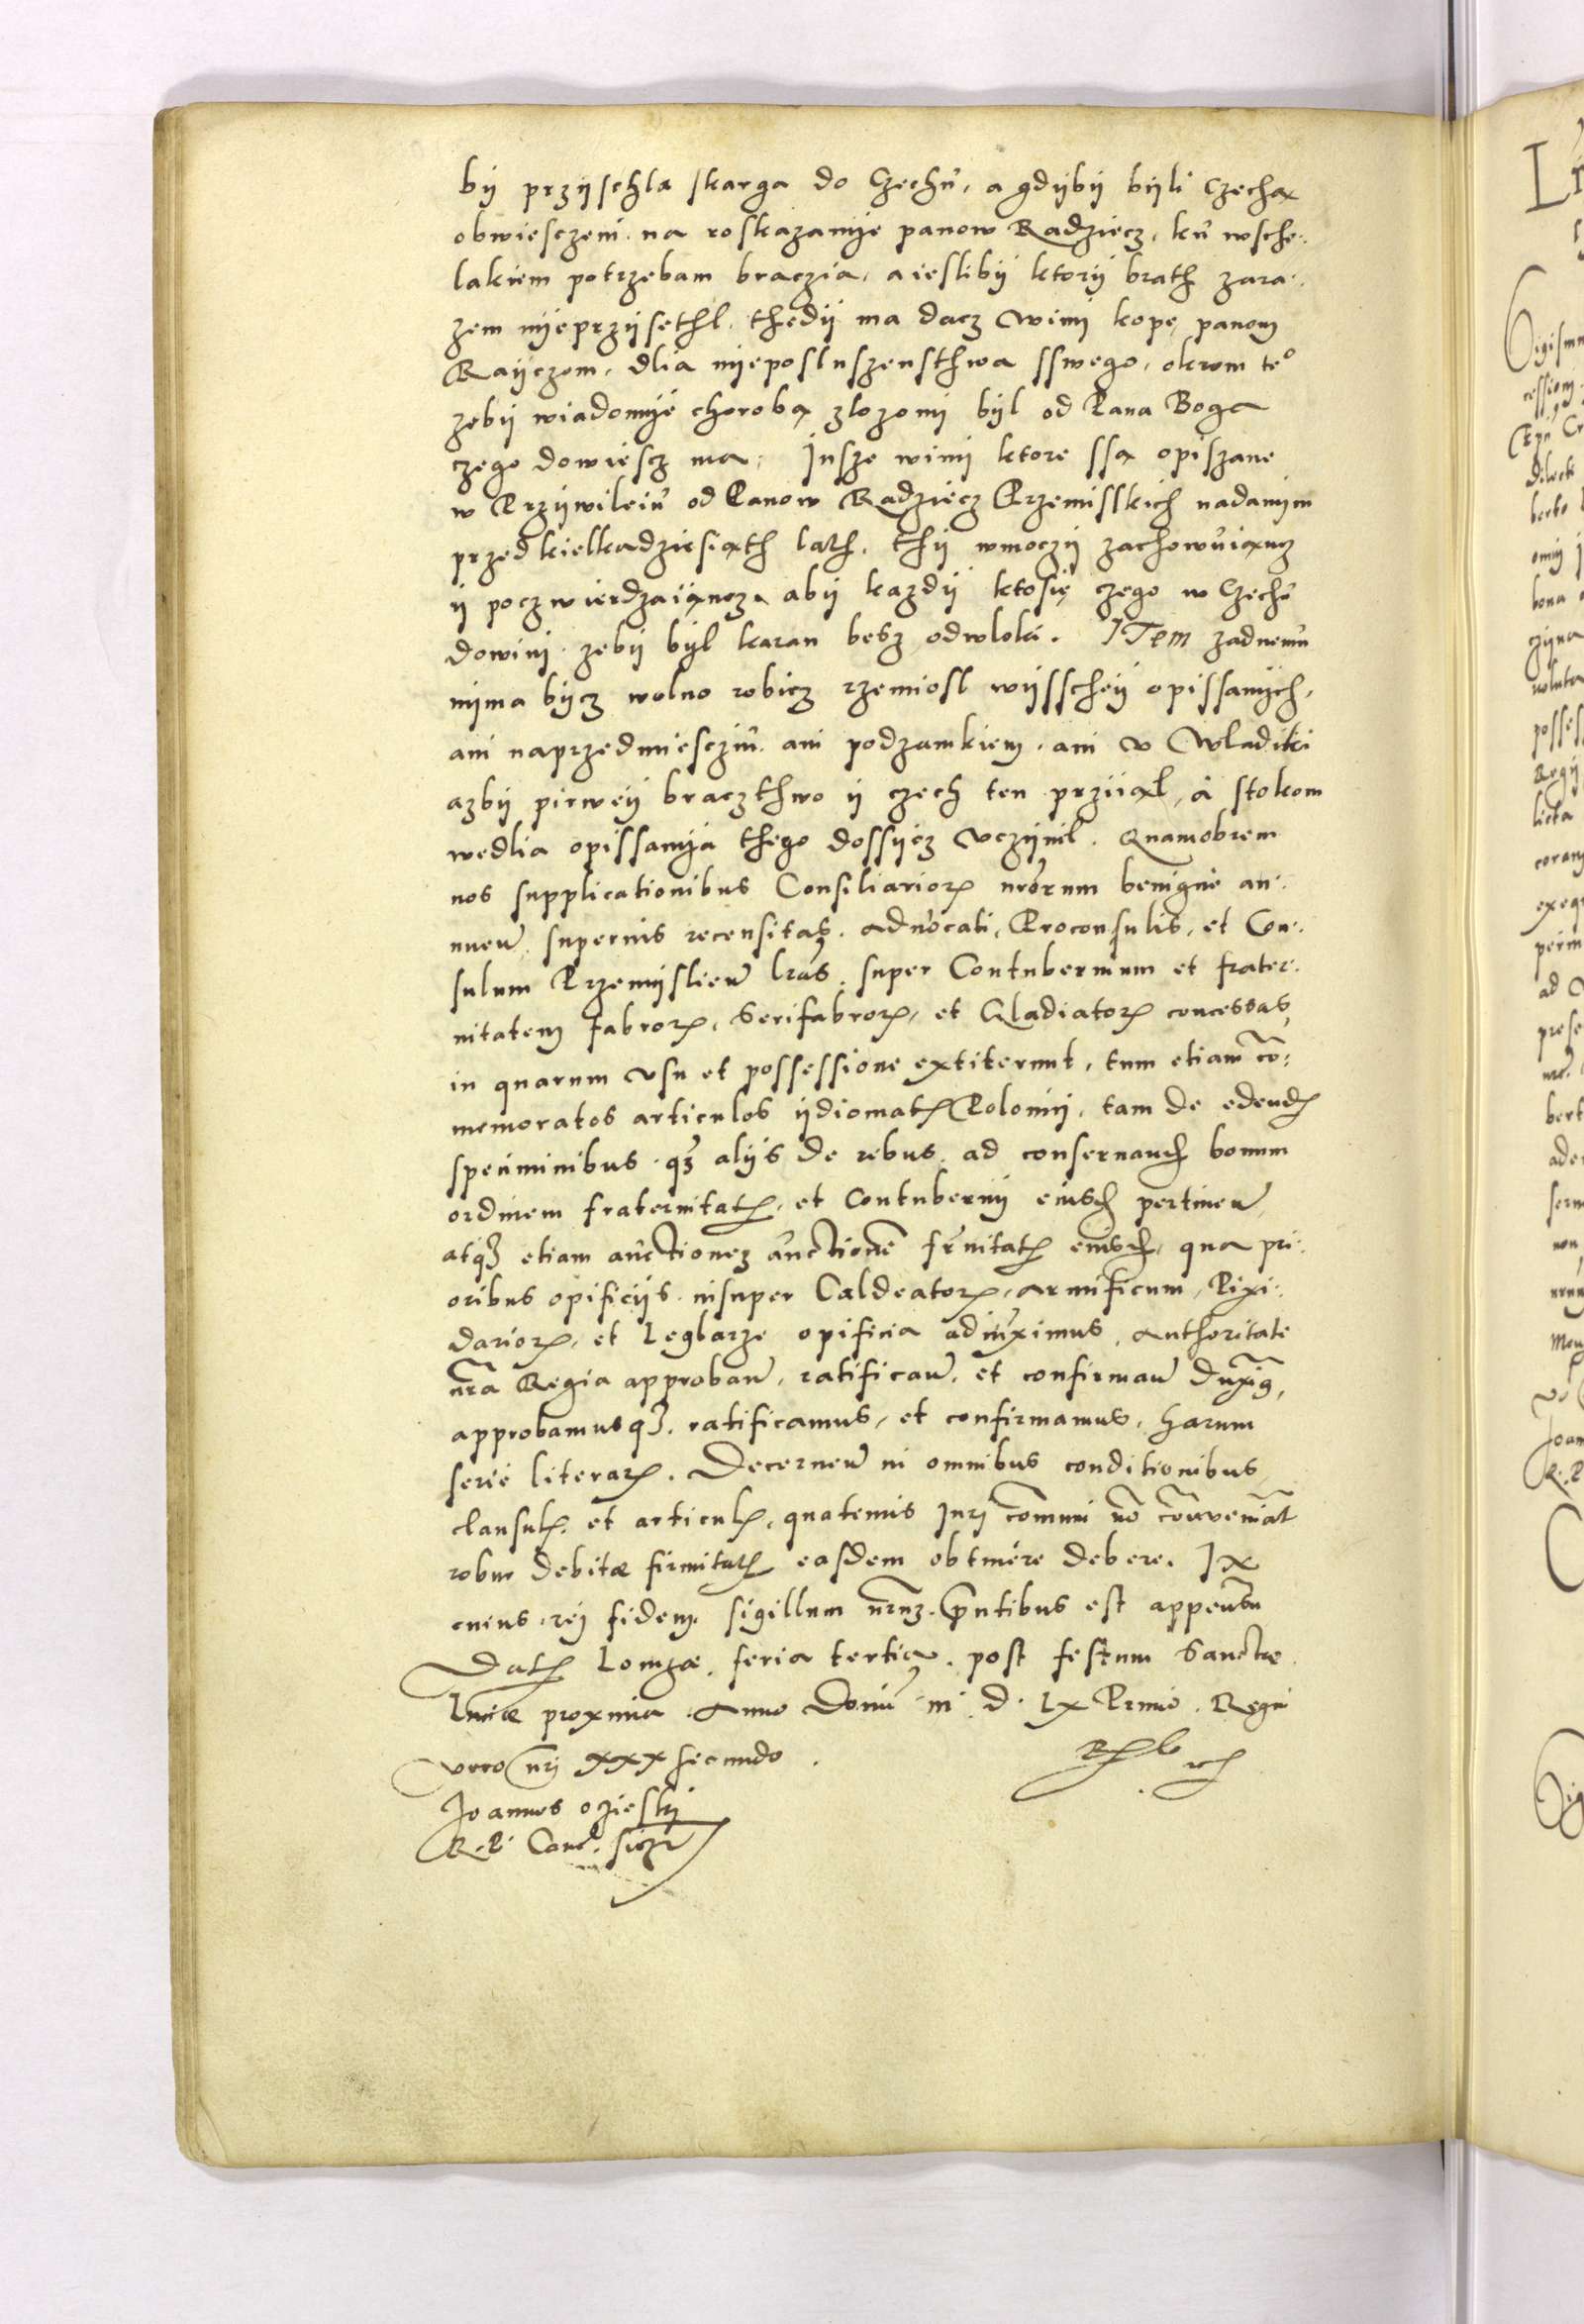 bÿ przÿschla skarga do Czechu, a gdÿbÿ bÿli Czechą
obwiesczeni na roskazanÿe panow Radziecz, ku wsche..
lakiem potrzebam braczia, a ieslibÿ ktorÿ brath zara..
zem nÿeprzÿsethl, thedÿ ma dacz winÿ kopę panom
Raÿczom, dlia nÿeposluszensthwa sswego, okrom te°
zebÿ wiadomÿe chorobą zlozonÿ bÿl od Pana Boga
czego dowiescz ma, Insze winÿ ktore ssą opiszane
w Przÿwileiu od Panow Radziecz Przemisskich nadanÿm
przed kielkadziesiąth lath, thÿ wmoczÿ zachowuiąncz
ÿ poczwierdzaiąncz, abÿ kazdÿ ktosię czego w Czechu
dowini, zebÿ bÿl karan besz odwloki. ITem zadnemu
nÿma bÿcz wolno robicz rzemiosl wÿsscheÿ opissanÿch,
ani naprzedmiesciu ani podzamkiem, ani v Wladiki
azbÿ pirweÿ braczthwo ÿ czech ten prziiąl, a stokom
wedlia opissanÿa thego dossÿcz vczÿnil. Quamobrem
nos supplicationibus Consiliarior nrorum benigne an..
nuen supernis recensitas aduocati, Proconsulis, et Con..
sulum Przemyslien lras super Contubernium et frater..
nitatem fabror, Serifabror, et Gladiator concessas,
in quarum vsu et possessione extiterunt, tum etiam co..
memoratos articulos ÿdiomat Polonii, tam de edend
speciminibus qz alÿs de rebus ad conseruand bonum
ordinem fraternitat et Contubernÿ eiusd pertinen
atqz etiam auctionez auctione frnitat eiusd, qua pri..
oribus opificÿs insuper Caldeator, armificum, Pixi..
darior, et Leglarze opificia adiunximus, authoritate
nra Regia approban, ratifican, et confirman duxig,
approbamusqz, ratificamus, et confirmamus, harum
serie literar. Decernen in omnibus conditionibus
clausul et articul, quatenus Juri comuni no conueniat
robur debitæ firmitat easdem obtinere debere. In
cuius rej fidem, sigillum nruz pntibus est appensu
Dat Lomzæ, feria tertia post festum Sanctæ
Luciæ proxima anno Domi m d lx Primo. Regni
vero nri xxx secundo.
Joannes oziesky
R. P. Canc.